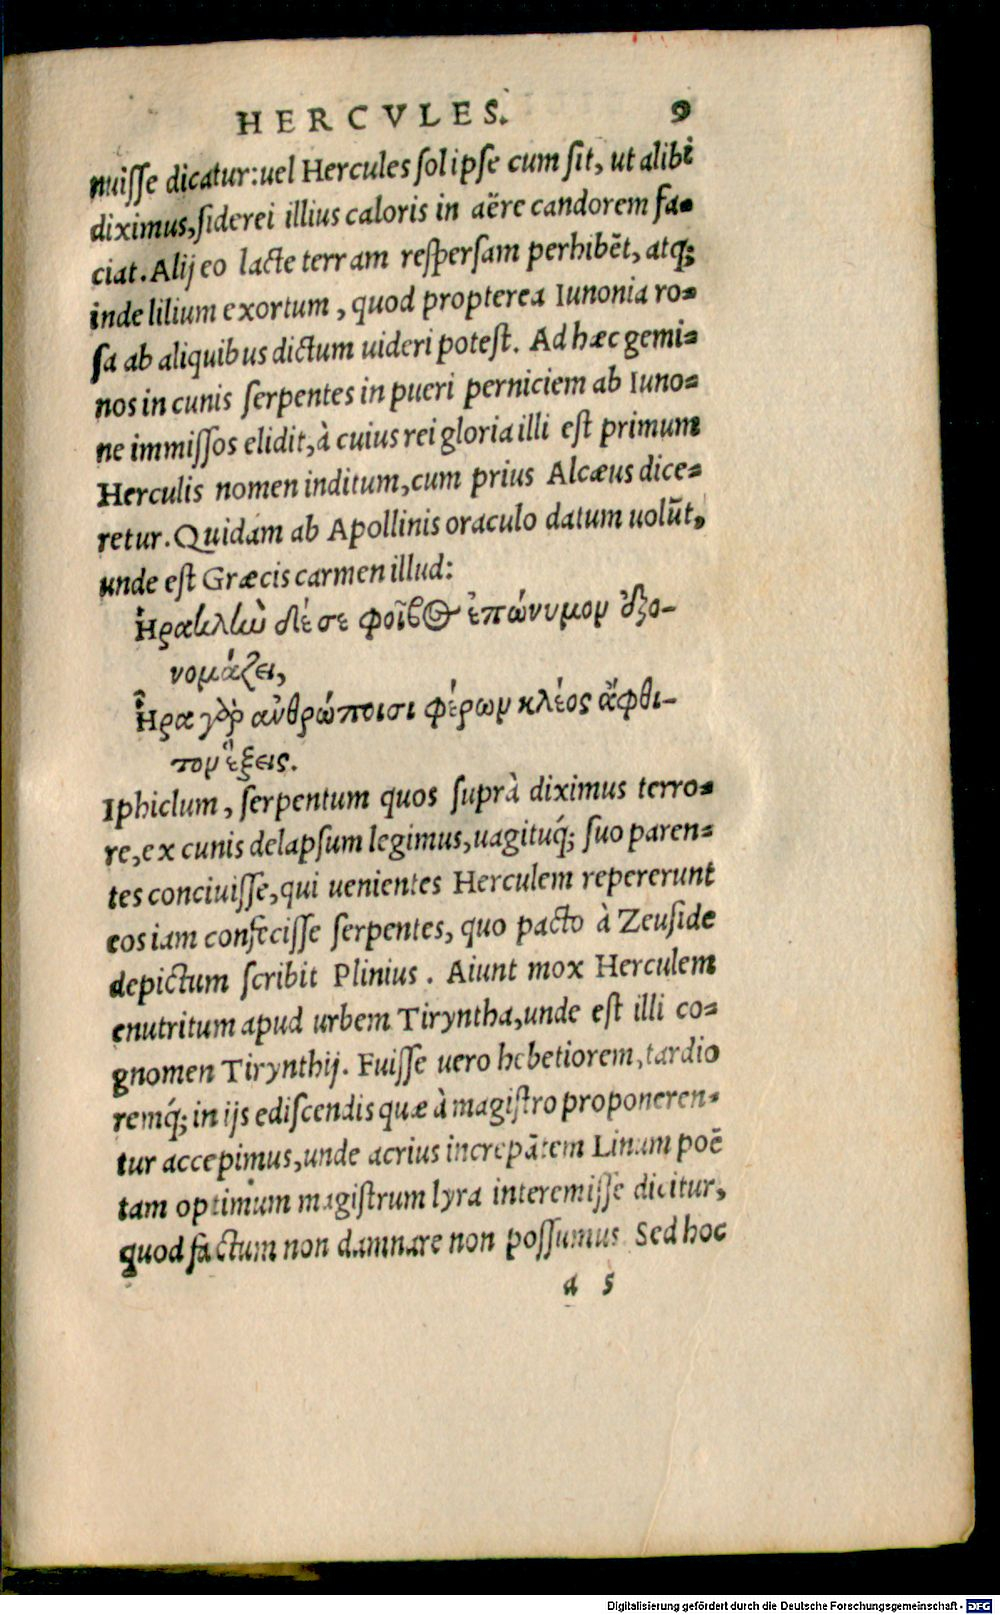 HERCVLES. 9
nuiſſe dicatur: uel Hercules ſol ipſe cum ſit, ut alibi
diximus, ſiderei illius caloris in aëre candorem fa-
ciat. Alij eo lacte terram reſperſam perhibēt, atq;
inde lilium exortum, quod propterea Iunonia ro-
ſa ab aliquibus dictum uideri poteſt. Ad hæc gemi-
nos in cunis ſerpentes in pueri perniciem ab Iuno-
ne immiſſos elidit, à cuius rei gloria illi eſt primum
Herculis nomen inditum, cum prius Alcæus dice-
retur. Quidam ab Apollinis oraculo datum uolūt,
unde eſt Græcis carmen illud:
Ἡρακλέω δέ σε φοῖβος ἐπώνυμον ἐξο-
νομάζει,
Ἦρα γὰρ ἀνθρώποισι φέρων κλέος ἄφθι-
τον ἕξεις.
Iphiclum, ſerpentum quos ſuprà diximus terro-
re, ex cunis delapſum legimus, uagituq́; ſuo paren-
tes conciuiſſe, qui uenientes Herculem repererunt
eos iam confeciſſe ſerpentes, quo pacto à Zeuſide
depictum ſcribit Plinius. Aiunt mox Herculem
enutritum apud urbem Tiryntha, unde eſt illi co-
gnomen Tirynthij. Fuiſſe uero hebetiorem, tardio
remq́; in ijs ediſcendis quæ à magiſtro proponeren-
tur accepimus, unde acrius increpātem Linum poë
tam optimum magiſtrum lyra interemiſſe dicitur,
quod factum non damnare non poſſumus Sed hoc
a 5
Digitalisierung gefördert durch die Deutsche Forschungsgemeinschaft - DFG